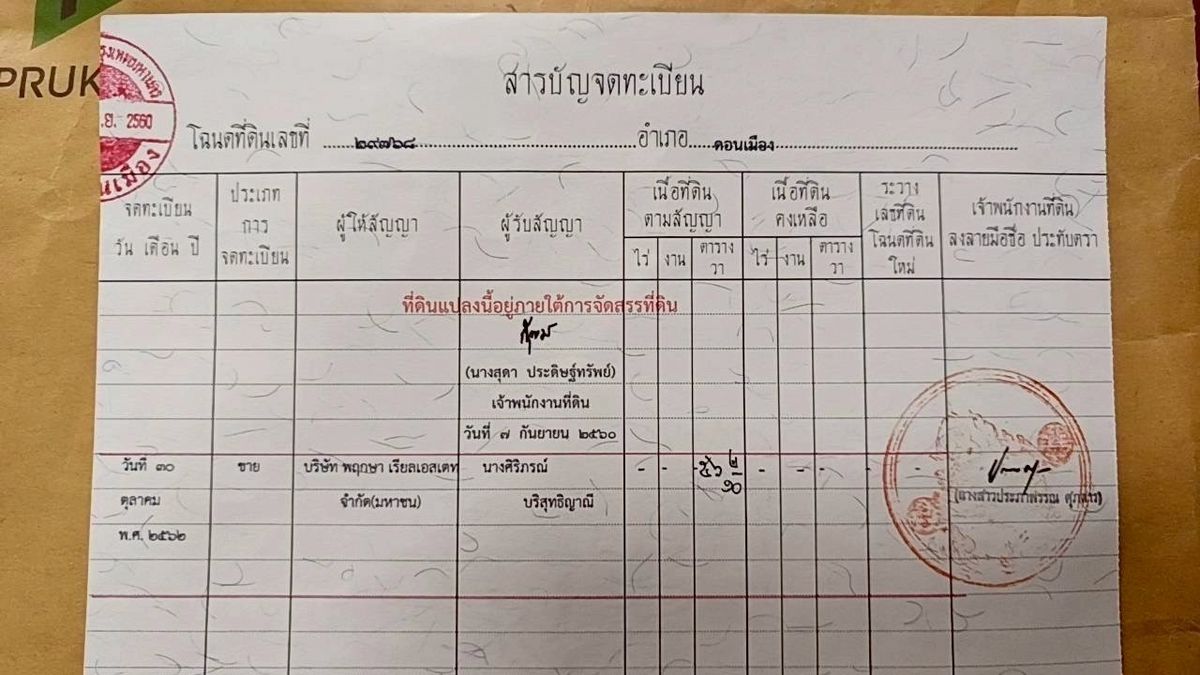 PRUK
.ย. 2560
สารบัญจดทะเบียน
โฉนดที่ดินเลขที่ ๒๙๗๖๘ อำเภอ ดอนเมือง
จดทะเบียน วัน เดือน ปี
ประเภท การ จดทะเบียน
ผู้ให้สัญญา
ผู้รับสัญญา
เนื้อที่ดิน ตามสัญญา
ไร่ งาน ตาราง วา
เนื้อที่ดิน คงเหลือ
ไร่ งาน ตาราง วา
ระวาง เลขที่ดิน โฉนดที่ดิน ใหม่
เจ้าพนักงานที่ดิน ลงลายมือชื่อ ประทับตรา
ที่ดินแปลงนี้อยู่ภายใต้การจัดสรรที่ดิน
(นางสุดา ประดิษฐ์ทรัพย์)
เจ้าพนักงานที่ดิน
วันที่ ๗ กันยายน ๒๕๖๐
วันที่ ๓๐ ขาย บริษัท พฤกษา เรียลเอสเตท นางศิริภรณ์ - - -๕๖ ๒/๑๐ - - - -
ตุลาคม จำกัด(มหาชน) บริสุทธิญาณี
(นางสาวประภาพรรณ
พ.ศ. ๒๕๖๒